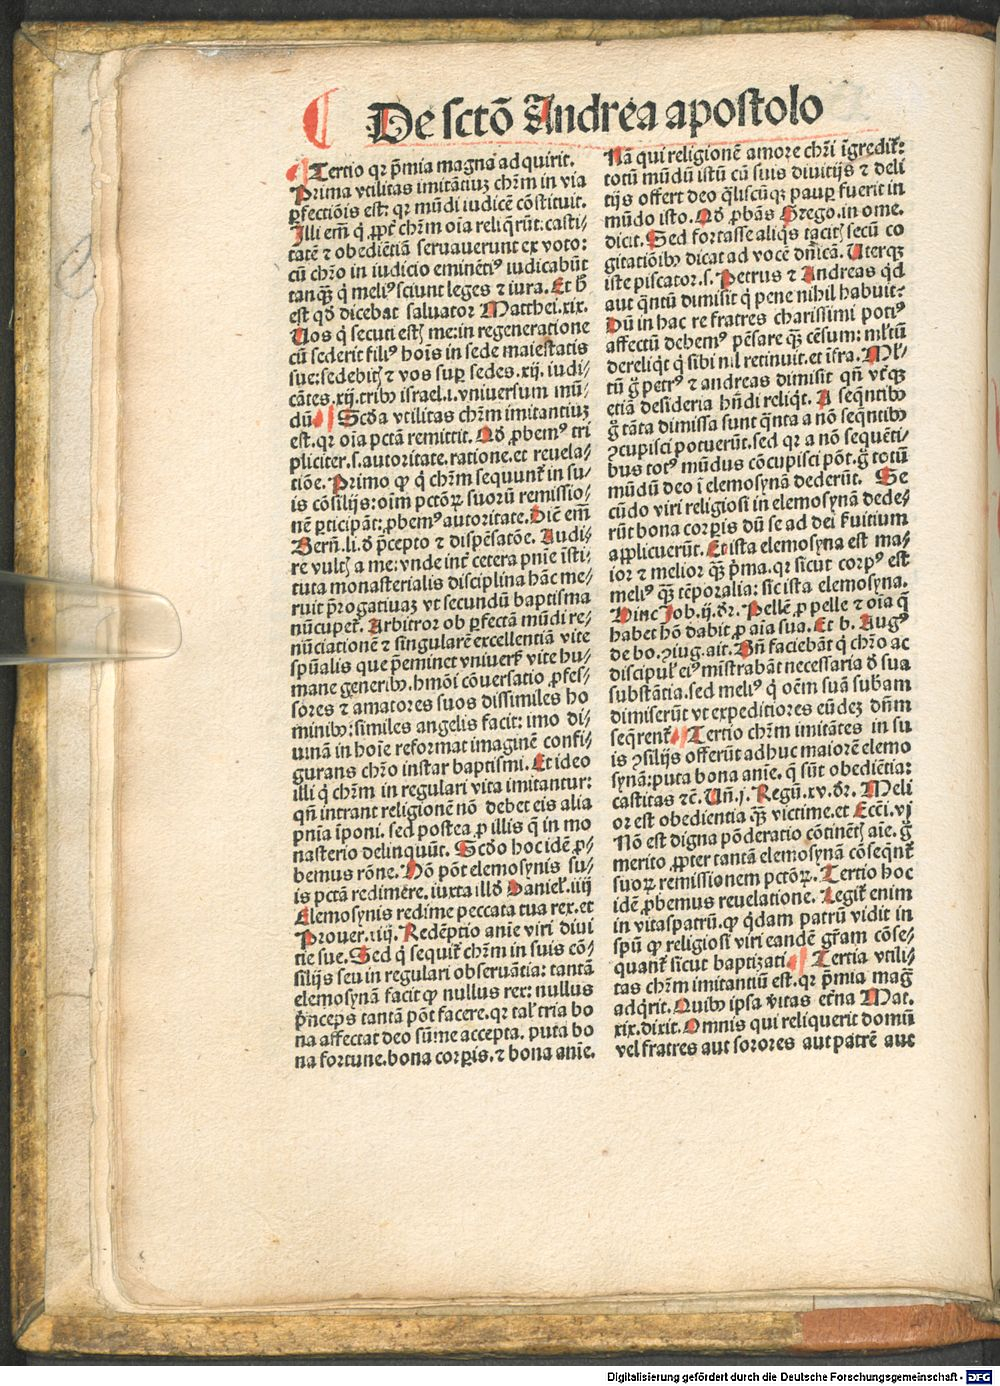 De sctō Andrea apostolo
¶ Tertio qꝛ p̄mia magna adquirit.
Prima vtilitas imitātiuꝫ chr̄m in via
ꝑfectiōis est: qꝛ mūdi iudicē cōstituit.
Illi em̄ q̇ ꝓpt̄ chr̄m oīa reliq̄rūt: casti⸗
tatē ⁊ obediētiā seruauerunt ex voto:
cū chr̄o in iudicio eminētiꝰ iudicabūt
tanqꝫ̄ q̇ meliꝰ sciunt leges ⁊ iura. Et h̄
est qd̄ dicebat saluator Matthei.xix.
Uos q̇ secuti estꝭ me: in regeneratione
cū sederit filiꝰ hoīs in sede maiestatis
sue: sedebitꝭ ⁊ vos suꝑ sedes .xij. iudi⸗
cātes .xij. tribꝰ israel .i. vniuersum mū⸗
dū. ¶ Scd̄a vtilitas chr̄m imitantiuꝫ
est. qꝛ oīa pctā remittit. Qd̄ ꝓbemꝰ tri
pliciter .s. autoritate. ratione. et reuela⸗
tiōe. Primo ꝙ q̇ chr̄m sequunt̄ in su⸗
is cōsilijs: oīm pctōꝝ suorū remissio⸗
nē ꝑticipāt: ꝓbemꝰ autoritate. Dic̄ em̄
Bern̄. li. d̄ p̄cepto ⁊ dispēsatōe. Audi⸗
re vultꝭ a me: vnde int̄ cetera pn̄ie īsti⸗
tuta monasterialis disciplina hāc me⸗
ruit p̄rogatiuaꝫ vt secundū baptisma
nūcupet̄. Arbitror ob ꝑfectā mūdi re⸗
nūciationē ⁊ singularē excellentiā vite
spūalis que p̄eminet vniuers̄ vite hu⸗
mane generibꝰ. hmōi cōuersatio ꝓfes⸗
sores ⁊ amatores suos dissimiles ho
minibꝰ: similes angelis facit: imo di⸗
uinā in hoīe reformat imaginē confi⸗
gurans chr̄o instar baptismi. Et ideo
illi q̇ chr̄m in regulari vita imitantur:
qn̄ intrant religionē nō debet eis alia
pn̄ia īponi. sed postea ꝓ illis q̄ in mo
nasterio delinquūt. Scd̄o hoc idē ꝓ⸗
bemus rōne. Nō pōt elemosynis su⸗
is pctā redimere. iuxta illd̄ Daniel̄ .iiij
Elemosynis redime peccata tua rex. et
Prouer. xiij. Redēptio anīe viri diui
tie sue. Sed q̇ sequit̄ chr̄m in suis cō⸗
silijs seu in regulari obseruātia: tantā
elemosynā facit ꝙ nullus rex: nullus
p̄nceps tantā pōt facere. qꝛ tal̄ tria bo
na affectat deo sūme accepta. puta bo
na fortune. bona corꝑis. ⁊ bona anīe.
Nā qui religionē amore chr̄i īgredit̄:
totū mūdū istū cū suis diuitijs ⁊ deli
tijs offert deo q̄liscūqꝫ pauꝑ fuerit in
mūdo isto. Qd̄ ꝓbās Grego. in ome.
dicit. Sed fortasse aliq̇s tacitꝭ secū co
gitatiōibꝰ dicat ad vocē dn̄icā. Uterqꝫ
iste piscator .s. Petrus ⁊ Andreas q̇d
aut q̄ntū dimisit q̇ pene nihil habuit?
Dū in hac re fratres charissimi potiꝰ
affectū debemꝰ pēsare qꝫ̄ cēsum: ml̄tū
dereliq̇t q̇ sibi nil retinuit. et īfra. Ml̄⸗
tū g̊ petrꝰ ⁊ andreas dimisit qn̄ vt̄qꝫ
etiā desideria hn̄di reliq̇t. A seq̄ntibꝰ
g̊ tāta dimissa sunt q̄nta a nō seq̄ntibꝰ
ꝯcupisci potuerūt. sed qꝛ a nō sequēti⸗
bus totꝰ mūdus cōcupisci pōt. g̊ totū
mūdū deo ī elemosynā dederūt. Se
cūdo viri religiosi in elemosynā dede⸗
rūt bona corꝑis dū se ad dei s̄uitium
applicuerūt. Et ista elemosyna est ma⸗
ior ⁊ melior qꝫ̄ p̄ma. qꝛ sicut corpꝰ est
meliꝰ qꝫ̄ tēporalia: sic ista elemosyna.
Hinc Job .ij. dr̄. Pellē ꝓ pelle ⁊ oīa q̄
habet hō dabit ꝓ aīa sua. Et b. Augꝰ
de bo. ꝯiug. ait. Bn̄ faciebāt q̇ chr̄o ac
discipul̄ eiꝰ mīstrabāt necessaria d̄ sua
substātia. sed meliꝰ q̇ oēm suā subam̄
dimiserūt vt expeditiores eūdeꝫ dn̄m
seq̄rent̄. ¶ Tertio chr̄m imitātes in su
is ꝯsilijs offerūt adhuc maiorē elemo
synā: puta bona anīe. q̄ sūt obediētia:
castitas ⁊c̄. Un̄ .j. Regū .xv. dr̄. Meli
or est obedientia qꝫ̄ victime. et Ecc̄i. vj
Nō est digna pōderatio cōtinētꝭ aīe. g̊
merito ꝓpter tantā elemosynā cōseq̄nt̄
suoꝝ remissionem pctōꝝ. Tertio hoc
idē ꝓbemus reuelatione. Legit̄ enim
in vitaspatrū. ꝙ q̇dam patrū vidit in
spū ꝙ religiosi viri eandē gr̄am cōse⸗
quant̄ sicut baptizati. ¶ Tertia vtili⸗
tas chr̄m imitantiū est. qꝛ p̄mia maḡ
adq̇rit. Quibꝰ ipsa v̄itas et̄na Mat.
xix. dixit. Omnis qui reliquerit domū
vel fratres aut sorores aut patrē aut
Digitalisierung gefördert durch die Deutsche Forschungsgemeinschaft - DFG